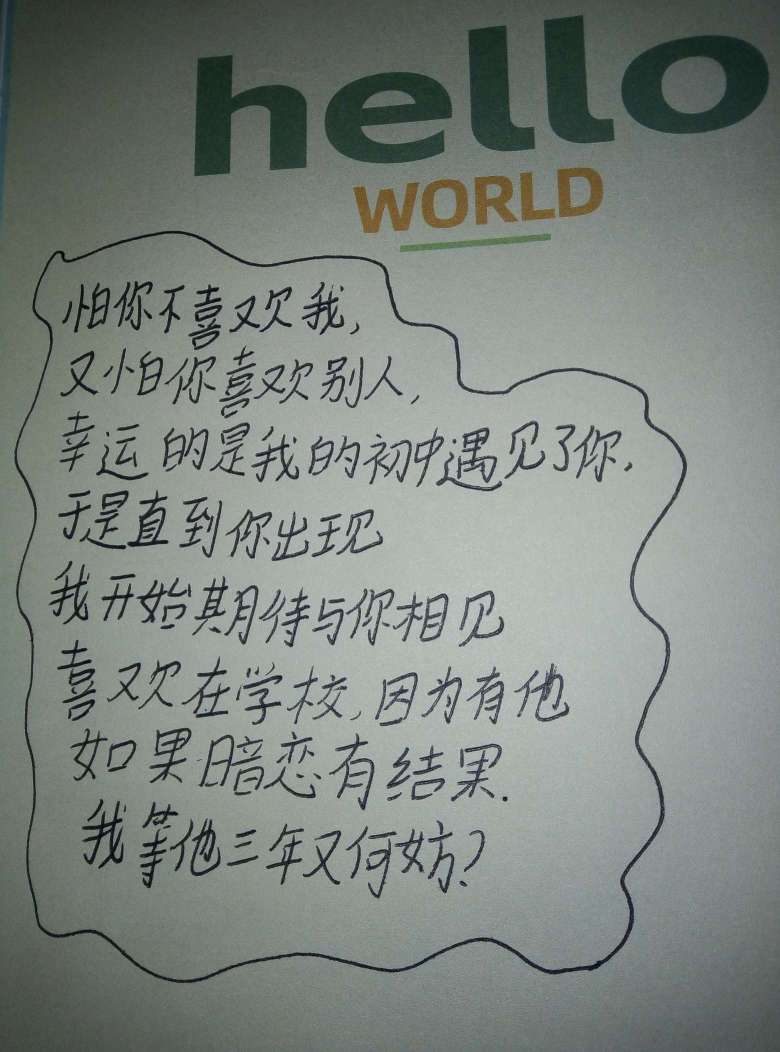 hello
WORLD
怕你不喜欢我,
又怕你喜欢别人,
幸运的是我的初中遇见了你.
于是直到你出现
我开始期待与你相见
喜欢在学校,因为有他
如果暗恋有结果.
我等他三年又何妨?